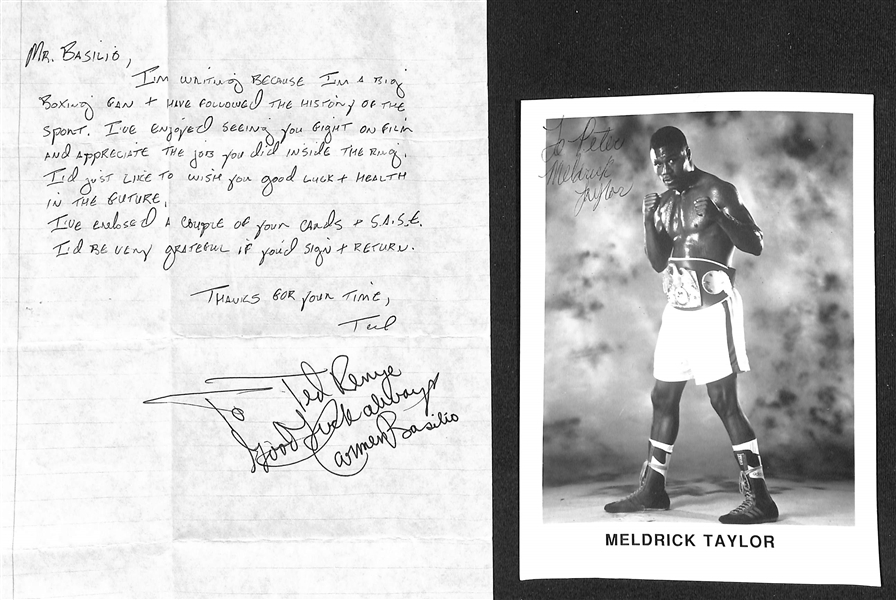 Mr. Basilio,
I'm writing because I'm a big
boxing fan + have followed the history of the
sport. I've enjoyed seeing you fight on film
and appreciate the job you did inside the ring.
I'd just like to wish you good luck + health
in the future.
I've enclosed a couple of your cards + S.A.S.E.
I'd be very grateful if you'd sign + return.
Thanks for your time,
Ted
To Ted Renye
Good Luck always
Carmen Basilio
To Peter
Meldrick
Taylor
MELDRICK TAYLOR